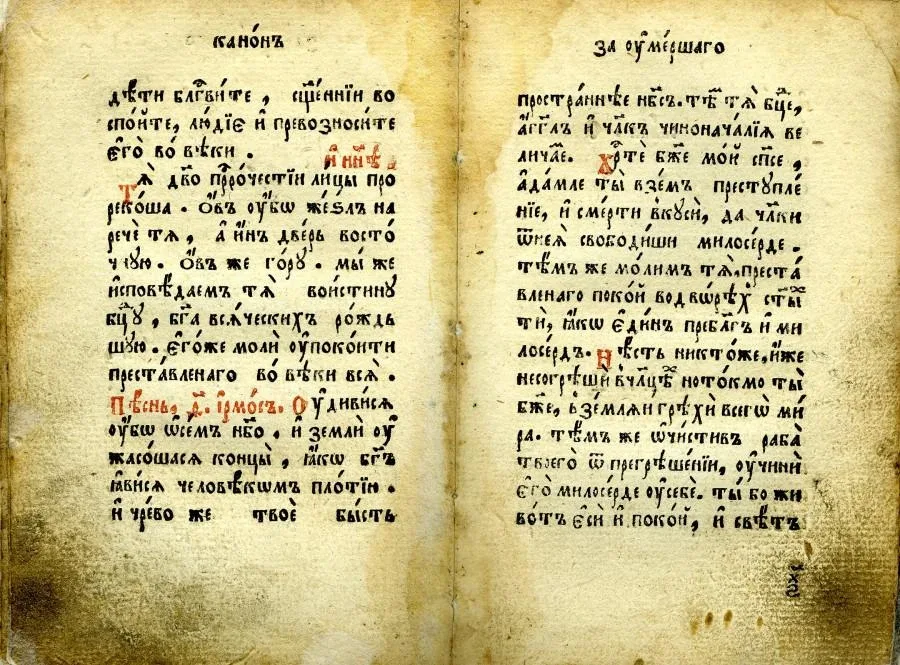 канѡ́нъ
дѣ́ти бл҃гви́те, сщ҃е́ннїи во
спо́йте, лю́дїѐ и҆ превозноси́те
є҆го̀ во́ вѣки.
и҆ нн҃ѣ
Тѧ̀ дв҃о прⷪ҇ро́честїи лицы про
реко́ша. О҆́въ ᲂу҆́бѡ же́ѕлъ на
рече̑ тѧ̀, а҆ и҆́нъ две́рь восто́
чную. О҆́въ же го́ру. мы́ же
и҆сповѣ́даемъ тѧ̀ вои́стину
бц҃у, бг҃а всѧ́ческихъ ро́ждь
шую. є҆го́же моли̑ ᲂу҆поко́ити
преста́вленаго во́ вѣки всѧ̀.
Пѣ́снь, ѳ҃. і҆рмо́съ. Оу҆диви́сѧ
ᲂу҆́бѡ ѡ҆ се́мъ нб҃о, и҆ землѝ ᲂу҆
жасо́шасѧ концы̀, ꙗ҆́кѡ бг҃ъ
ꙗ҆ви́сѧ человѣ́кѡмъ пло́тїю.
и҆ чре́во же твоѐ бы́сть
за ᲂу҆ме́ршаго
простра́ннѣе нб҃съ. тѣ́ⷨ тѧ̀ бц҃е,
а҆́гг҃лъ и҆ чл҃къ чинонача́лїѧ ве
лича́е.
Хрⷭ҇тѐ бж҃е мо́й сп҃се,
а҆да́мле ты̀ взе́мъ преступле́
нїе, и҆ сме́рти вкусѝ, да чл҃ки
ѿ неѧ̀ свободи́ши милосе́рде.
тѣ́мъ же мо́лимъ тѧ̀, преста́
вленаго поко́й во дво́рѣⷯ ст҃ы́ⷯ
тѝ, ꙗ҆́кѡ є҆ди́нъ пребл҃гъ и҆ ми
лосе́рдъ. Нѣ́сть никто́же, и҆́же
несогрѣшѝ в чл҃цеⷯ но то́кмо ты̀
бж҃е, взе́млѧи грѣхѝ всегѡ̀ ми́
ра. тѣ́мъ же ѡ҆чи́стивъ раба̀
твоего̀ ѿ прегрѣше́нїи, ᲂу҆чинѝ
є҆го̀ милосе́рде ᲂу҆ себѐ. ты́ бо жи
во́тъ є҆сѝ и҆ поко́й, и҆ свѣ́тъ